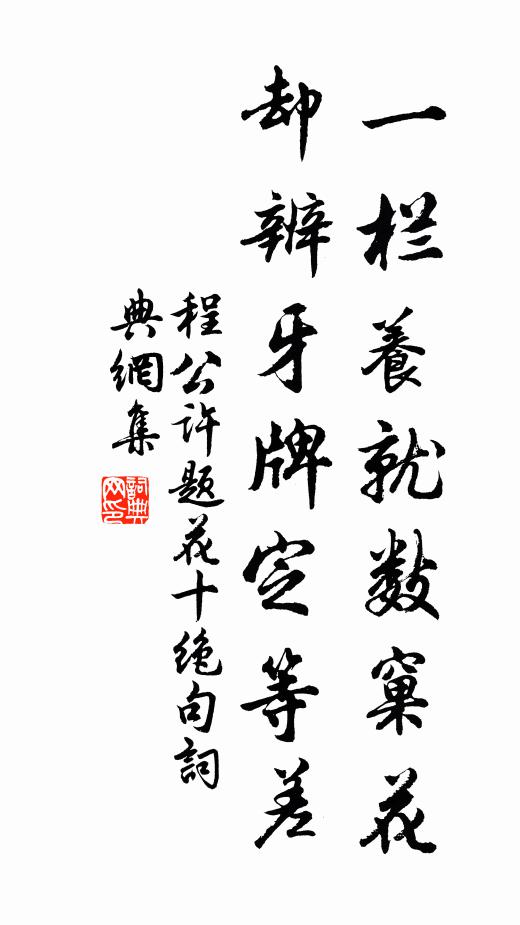 一栏養就數窠花
却辨牙牌定等差
程公许题花十绝句詞
典網集
詞典网印